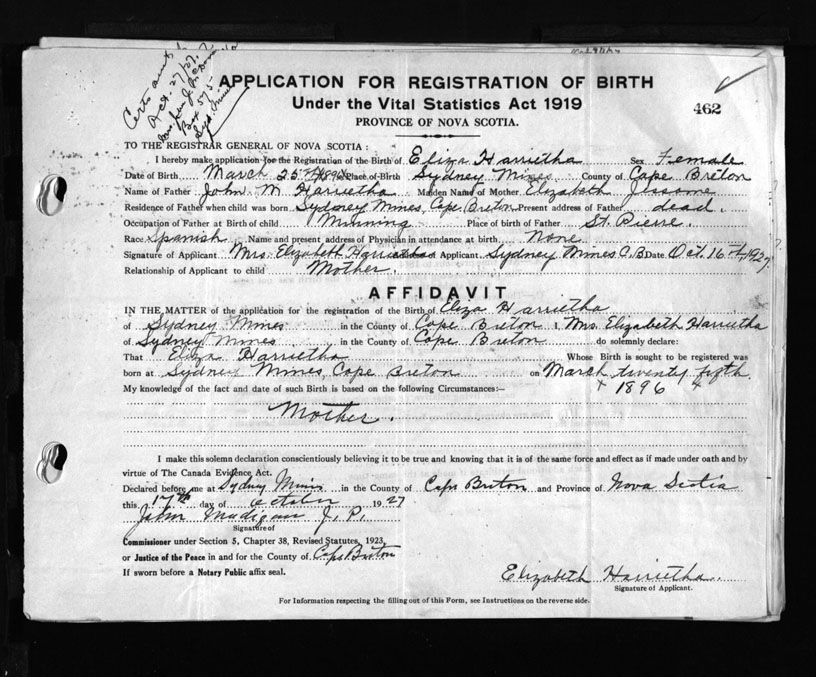 Certs
Oct. 27/27
Box 575
Syd. Mines
APPLICATION FOR REGISTRATION OF BIRTH
462
Under the Vital Statistics Act 1919
PROVINCE OF NOVA SCOTIA.
TO THE REGISTRAR GENERAL OF NOVA SCOTIA:
I hereby make application for the Registration of the Birth of Eliza Harrietha Sex Female
Date of Birth March 25th 1896 Place of Birth Sydney Mines County of Cape Breton
Name of Father John M Harrietha Maiden Name of Mother Elizabeth Jessome
Residence of Father when child was born Sydney Mines, Cape Breton Present address of Father dead.
Occupation of Father at Birth of child Minning Place of birth of Father St. Pierre.
Race Spanish Name and present address of Physician in attendance at birth none
Signature of Applicant Mrs. Elizabeth Harrietha Applicant Sydney Mines C.B. Date Oct. 16th 1927.
Relationship of Applicant to child Mother.
AFFIDAVIT
IN THE MATTER of the application for the registration of the Birth of Eliza Harrietha
of Sydney Mines in the County of Cape Breton I, Mrs. Elizabeth Harrietha
of Sydney Mines in the County of Cape Breton do solemnly declare:
That Eliza Harrietha Whose Birth is sought to be registered was
born at Sydney Mines, Cape Breton on March twenty fifth
My knowledge of the fact and date of such Birth is based on the following Circumstances:— 1896
Mother.
I make this solemn declaration conscientiously believing it to be true and knowing that it is of the same force and effect as if made under oath and by
virtue of The Canada Evidence Act.
Declared before me at Sydney Mines in the County of Cape Breton and Province of Nova Scotia
this 17th day of October 1927
John Madigan J.P.
Signature of
Commissioner under Section 5, Chapter 38, Revised Statutes, 1923,
or Justice of the Peace in and for the County of Cape Breton
If sworn before a Notary Public affix seal.
Elizabeth Harrietha.
Signature of Applicant.
For Information respecting the filling out of this Form, see Instructions on the reverse side.